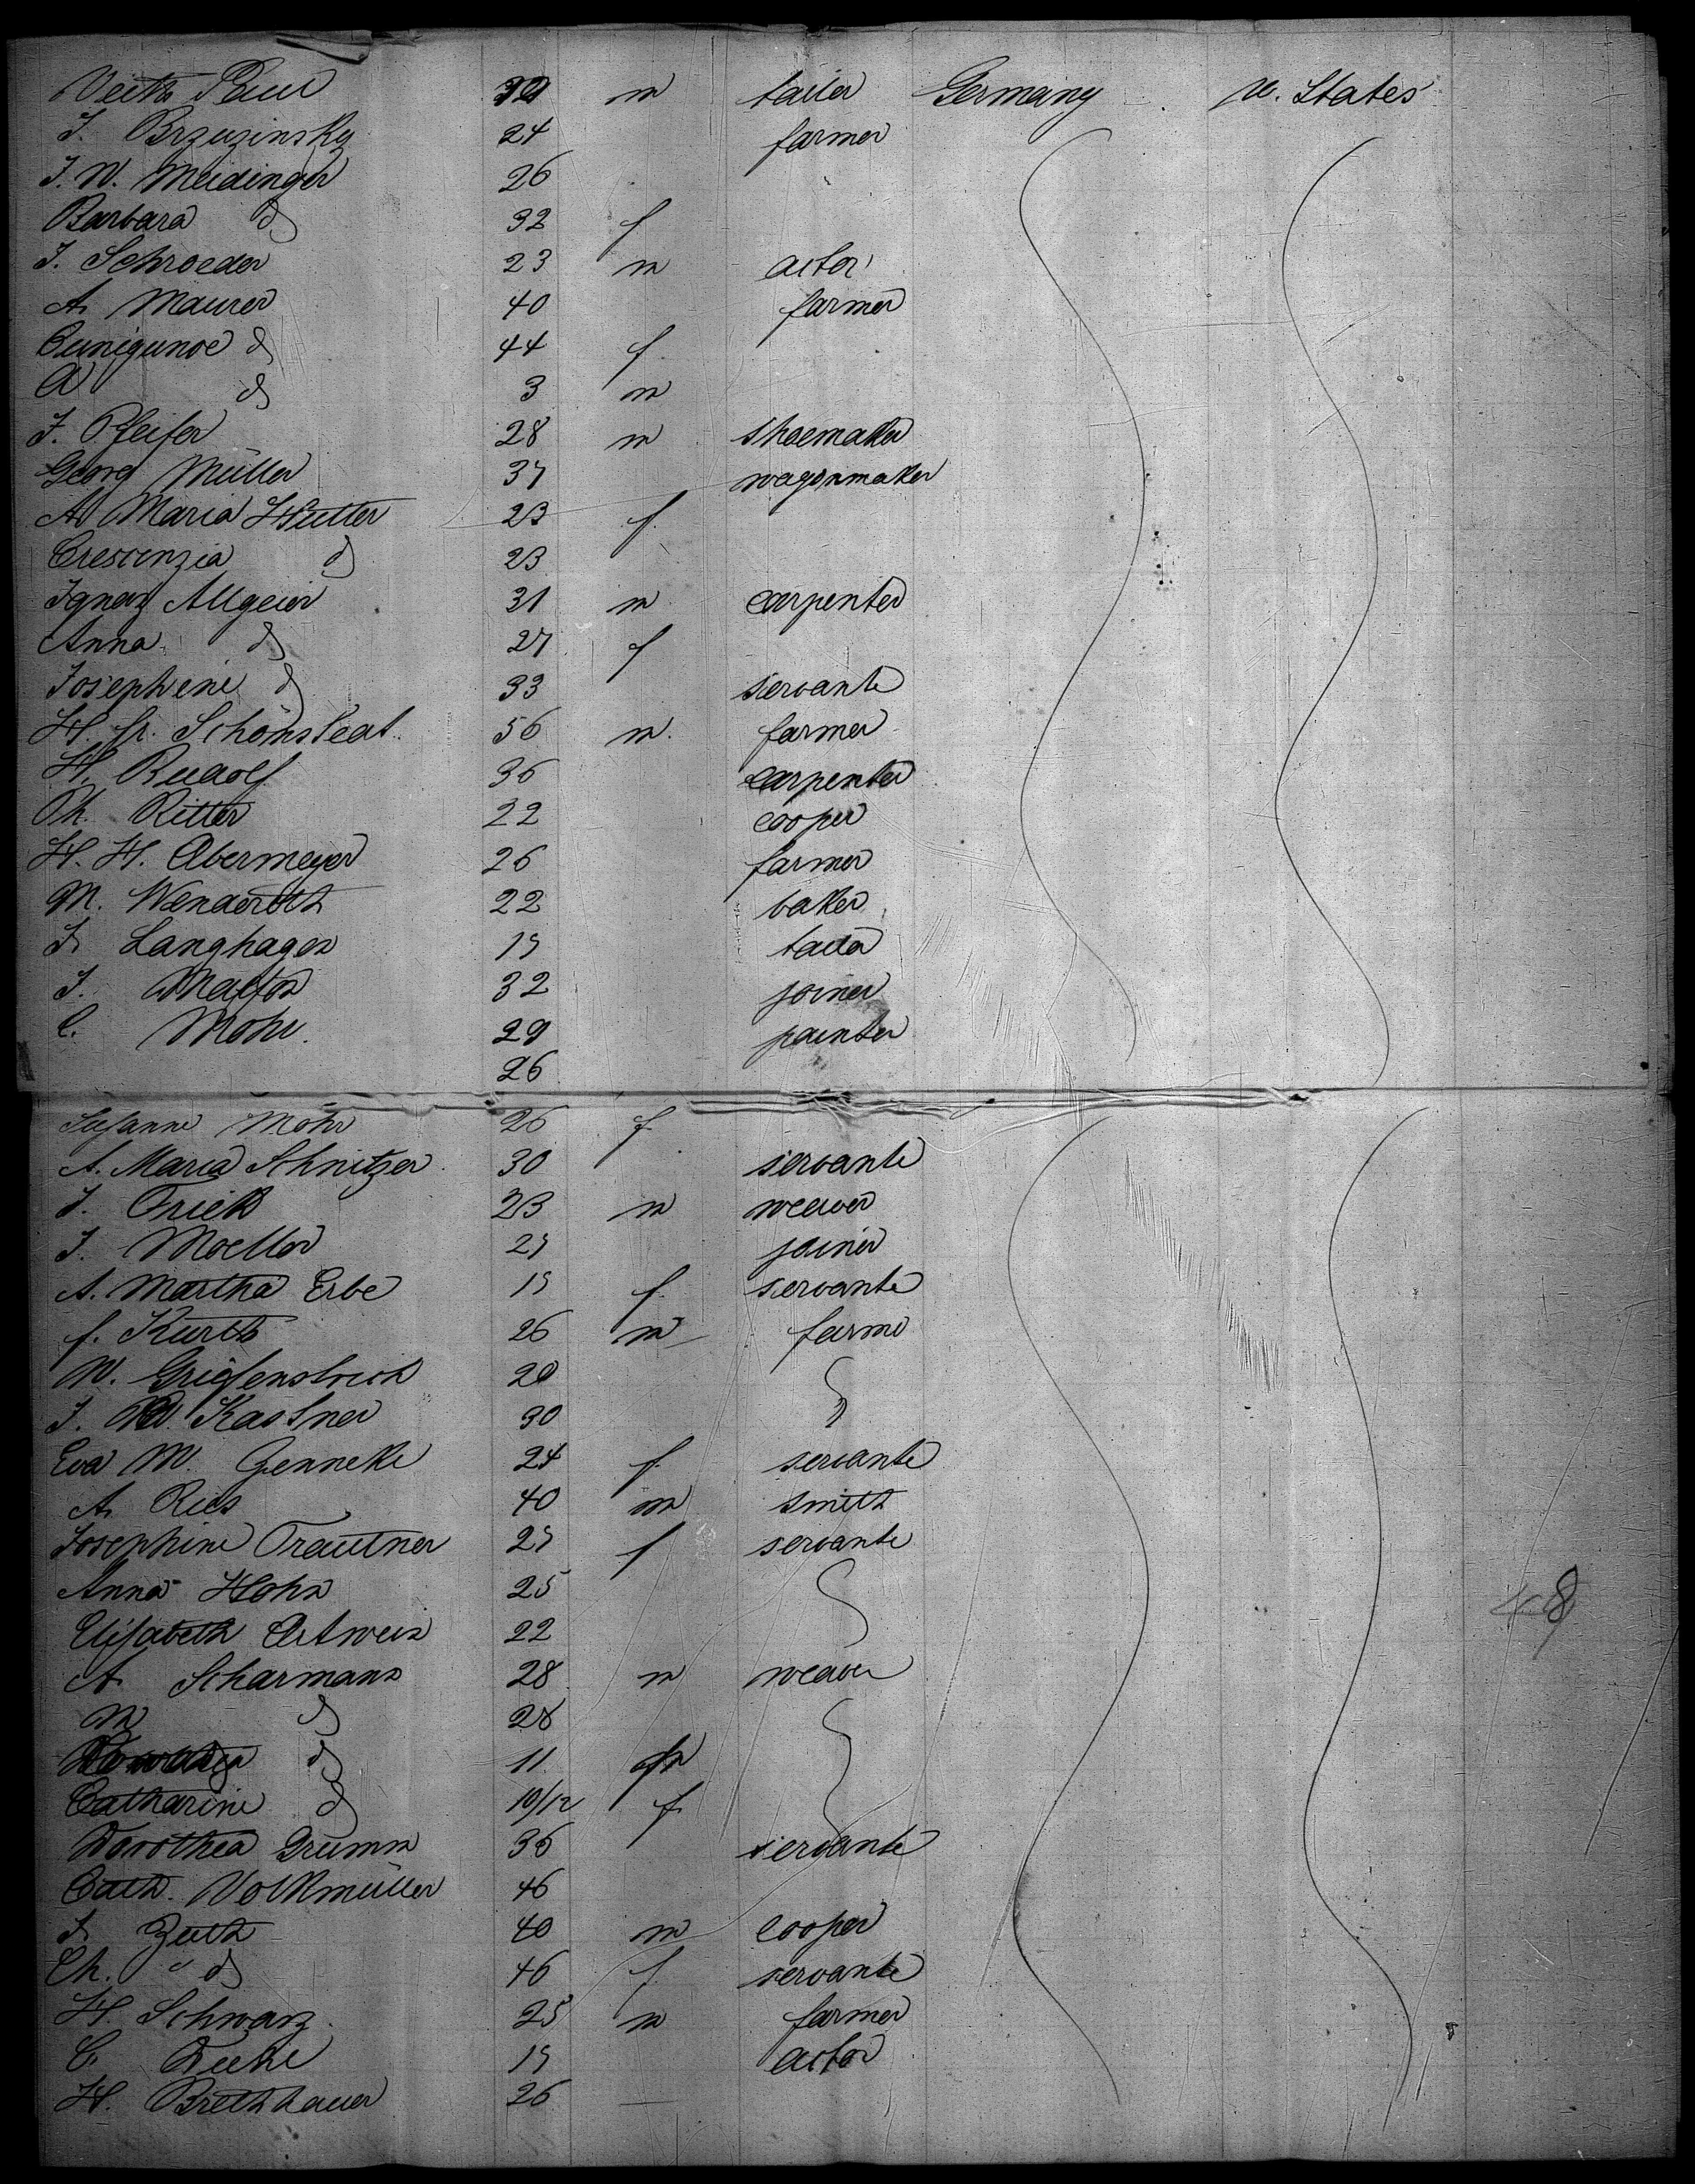 Veith Paul 29 m tailor Germany U. States
J. Brzuzinsky 24 farmer
J. W. Meidinger 26
Barbara do 32 f
J. Schroeder 23 m actor
A. Maurer 40 farmer
Cunigunde do 44 f
A do 3 m
J. Pfeifer 28 m shoemaker
Georg Müller 37 wagonmaker
A. Maria Hutter 23 f
Crescenzia do 23
Ignaz Allgeier 31 m carpenter
Anna do 27 f
Josephine do 33 servante
H. Fr. Schönsteat 56 m farmer
H. Rudolf 36 carpenter
Ph. Ritter 22 cooper
H. H. Abermeyer 26 farmer
M. Wenderoth 22 baker
J. Langhagen 17 tailor
J. 32 joiner
C. Mohr 29 painter
26
Susanne Mohr 26 f
A. Maria Schnitzer 30 servante
J. Trick 23 m weaver
J. Moeller 27 joiner
A. Martha Erbe 17 f servante
f. Kurth 26 m farme
W. 20
J. Kastner 30
Eva M. Genneke 24 f servante
A. Ries 40 m smith
Josephine Trautner 27 f servante
Anna Hohn 25
Elisabeth Artwein 22
A. Scharmann 28 m weaver
M do 28
do 11
Catharine do 10/12 f
Dorothea Grumm 36 servante
Cath. Volkmüller 46
J. Zuth 40 m cooper
Ch. " do 46 f servante
H. Schwarz 25 m farmer
C. 17 actor
H. Brethhauer 26
48